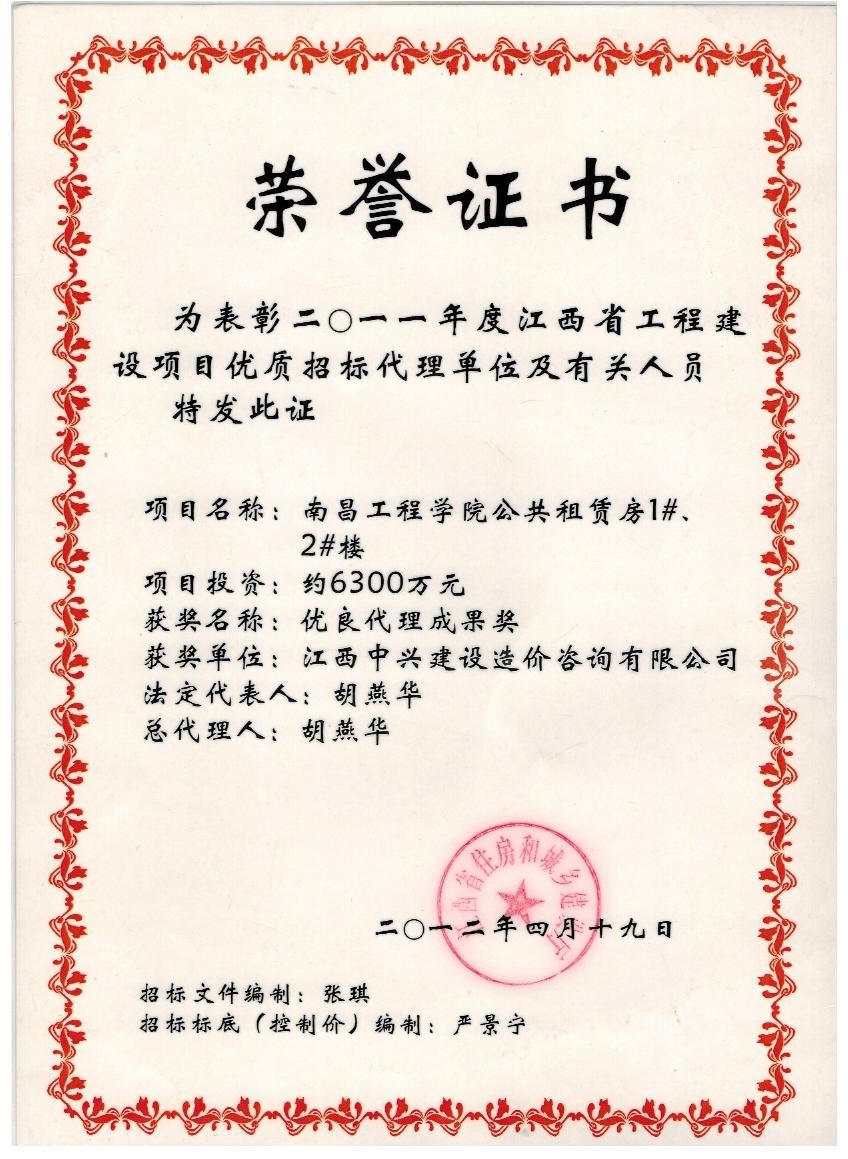 荣誉证书
为表彰二〇一一年度江西省工程建
设项目优质招标代理单位及有关人员
特发此证
项目名称：南昌工程学院公共租赁房1#、
2#楼
项目投资：约6300万元
获奖名称：优良代理成果奖
获奖单位：江西中兴建设造价咨询有限公司
法定代表人：胡燕华
总代理人：胡燕华
江西省住房和城乡建设厅
二〇一二年四月十九日
招标文件编制：张琪
招标标底（控制价）编制：严景宁